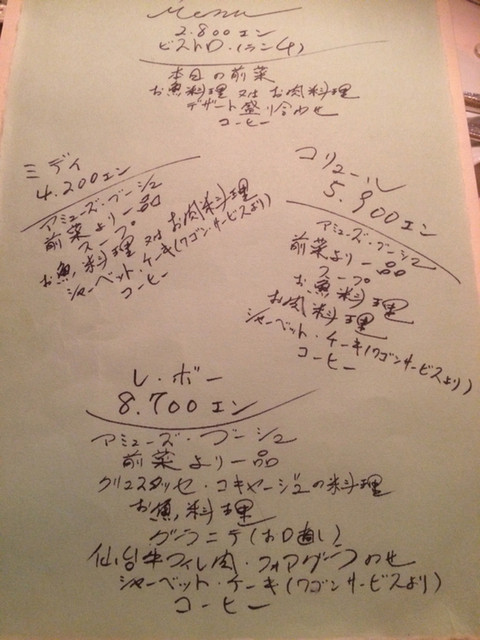 Menu
2.800エン
ビストロ・(ランチ)
本日の前菜
お魚料理又はお肉料理
デザート盛り合わせ
コーヒー
ミディ
4.200エン
アミューズ・ブーシュ
前菜より一品
スープ
お魚料理又はお肉料理
シャーベット・ケーキ(ワゴンサービスより)
コーヒー
コリュール
5.900エン
アミューズ・ブーシュ
前菜より一品
スープ
お魚料理
お肉料理
シャーベット・ケーキ(ワゴンサービスより)
コーヒー
レ・ボー
8.700エン
アミューズ・ブーシュ
前菜より一品
クリュスタッセ・コキヤージュの料理
お魚料理
グラニテ(お口直し)
仙台牛フィレ肉・フォアグラのせ
シャーベット・ケーキ(ワゴンサービスより)
コーヒー